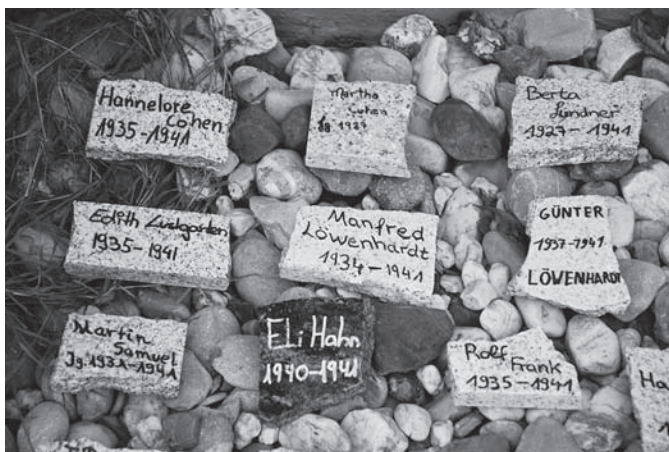 Hannelore
Cohen
1935-1941
Martha
Cohen
Jg 1927
Berta
Lindner
1927-1941
Edith Lustgarten
1935-1941
Manfred
Löwenhardt
1934-1941
GÜNTER
1937-1941
LÖWENHARDT
Martin
Samuel
Jg. 1931-1941
Eli Hahn
1940-1941
Rolf
Frank
1935-1941
Ha